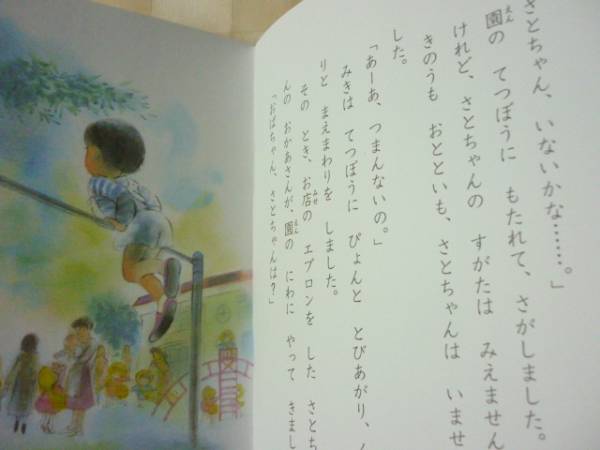 さとちゃん、いないかな……。」
園の てつぼうに もたれて、さがしました。
けれど、さとちゃんの すがたは みえません
きのうも おとといも、さとちゃんは いませ
した。
「あーあ、つまんないの。」
みきは てつぼうに ぴょんと とびあがり、く
りと まえまわりを しました。
その とき、お店の エプロンを した さとち
んの おかあさんが、園の にわに やって きまし
「おばちゃん、さとちゃんは?」